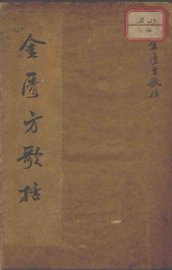 金匱方歌括
金匱方歌括